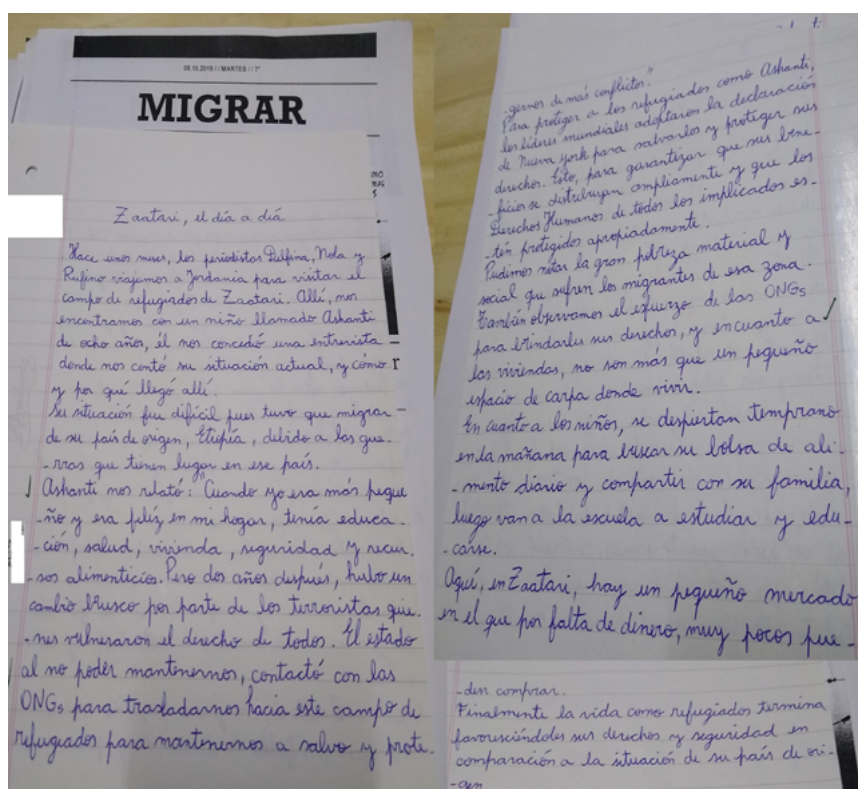 08.10.2019 // MARTES // 7°
MIGRAR
Zaatari, el día a día
Hace unos meses, los periodistas Delfina, Nola y
Rufino viajamos a Jordania para visitar el
campo de refugiados de Zaatari. Allí, nos
encontramos con un niño llamado Ashanti
de ocho años, él nos concedió una entrevista
donde nos contó su situación actual, y cómo
y por qué llegó allí.
Su situación fue difícil pues tuvo que migrar
de su país de origen, Etiopía, debido a las gue-
-rras que tienen lugar en ese país.
Ashanti nos relató: "Cuando yo era más peque
-ño y era feliz en mi hogar, tenía educa-
-ción, salud, vivienda, seguridad y recur-
-sos alimenticios. Pero dos años después, hubo un
cambio brusco por parte de los terroristas quie-
-nes vulneraron el derecho de todos. El estado
al no poder mantenernos, contactó con las
ONGs para trasladarnos hacia este campo de
refugiados para mantenernos a salvo y prote-
-gernos de más conflictos."
Para proteger a los refugiados como Ashanti,
los líderes mundiales adoptaron la declaración
de Nueva York para salvarlos y proteger sus
derechos. Esto, para garantizar que sus bene-
-ficios se distribuyan ampliamente y que los
Derechos Humanos de todos los implicados es-
-tén protegidos apropiadamente.
Pudimos notar la gran pobreza material y
social que sufren los migrantes de esa zona.
También observamos el esfuerzo de las ONGs
para brindarles sus derechos, y en cuanto a
las viviendas, no son más que un pequeño
espacio de carpa donde vivir.
En cuanto a los niños, se despiertan temprano
en la mañana para buscar su bolsa de ali-
-mento diario y compartir con su familia,
luego van a la escuela a estudiar y edu-
-carse.
Aquí, en Zaatari, hay un pequeño mercado
en el que por falta de dinero, muy pocos pue-
-den comprar.
Finalmente la vida como refugiados termina
favoresciéndoles sus derechos y seguridad en
comparación a la situación de su país de ori-
-gen